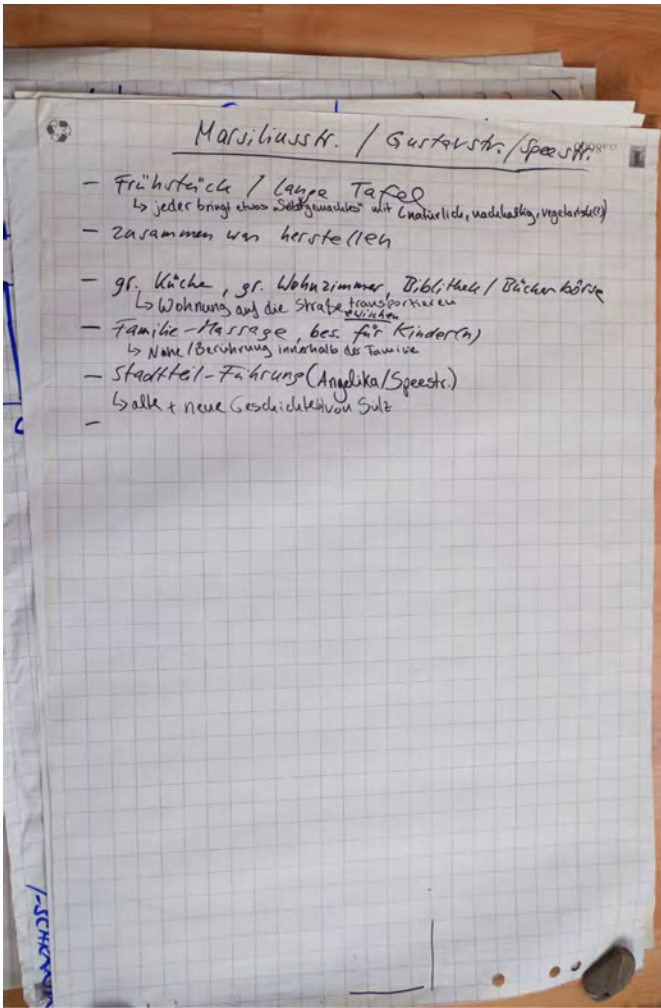 Marsiliusstr. / Gustavstr./Speestr.
- Frühstück / Lange Tafel
↳ jeder bringt etwas "Selbstgemachtes" mit (natürlich, nachhaltig, vegetarisch(!))
- zusammen was herstellen
- gr. Küche, gr. Wohnzimmer, Bibliothek / Bücherbörse
↳ Wohnung auf die Straße transportieren
zwischen
- Familie-Massage, bes. für Kinder(n)
↳ Nähe / Berührung innerhalb der Familie
- Stadtteil-Führung (Angelika/Speestr.)
↳ alte + neue Geschichte(n) von Sülz
-